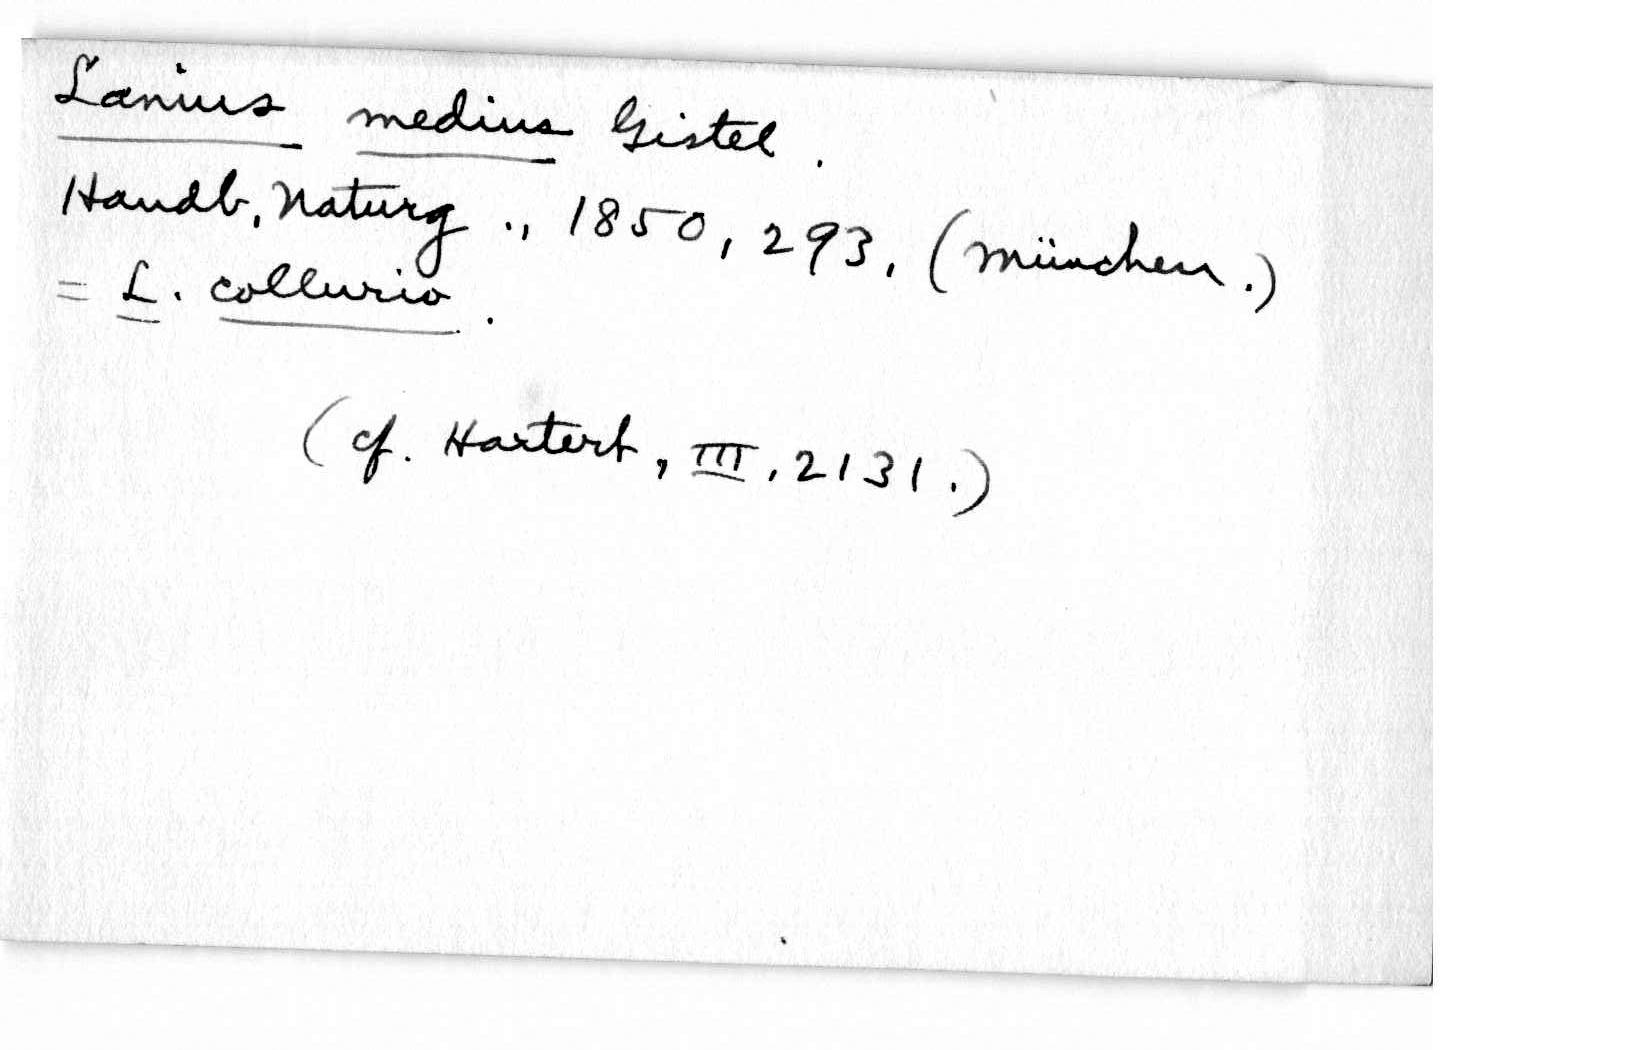 Lanius medius Gistel.
Handb. Naturg., 1850, 293. (München.)
= L. collurio.
(cf. Hartert, III, 2131.)